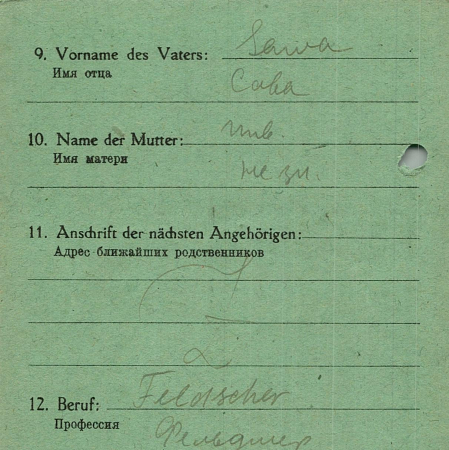 9. Vorname des Vaters: Sawa
Имя отца Сава
10. Name der Mutter: unb.
Имя матери не зн.
11. Anschrift der nächsten Angehörigen:
Адрес ближайших родственников
12. Beruf: Feldscher
Профессия Фельдшер